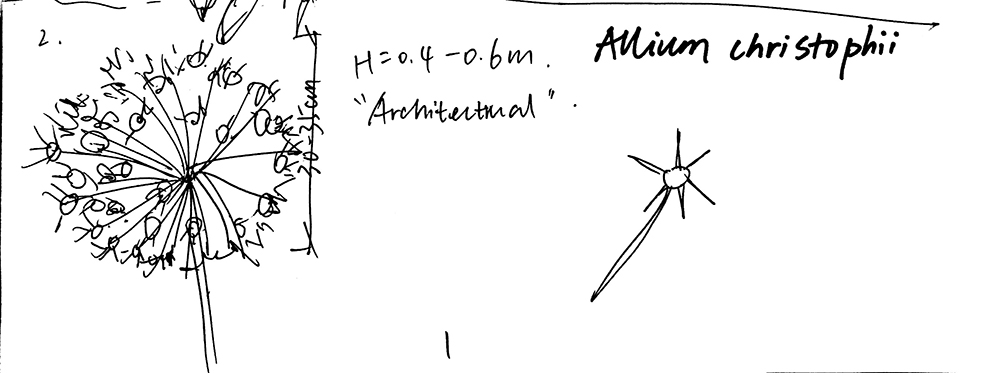 2.
H=0.4-0.6m.
"Architectural".
Allium christophii